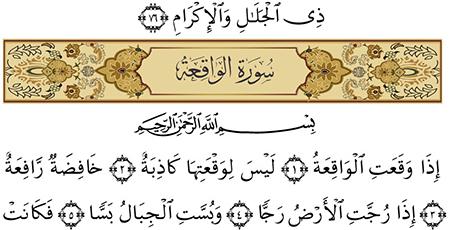 ذِى ٱلْجَلَـٰلِ وَٱلْإِكْرَامِ ﴿٧٦﴾
سُورَةُ الوَاقِعَةِ
بِسْمِ ٱللَّهِ ٱلرَّحْمَـٰنِ ٱلرَّحِيمِ
إِذَا وَقَعَتِ ٱلْوَاقِعَةُ ﴿١﴾ لَيْسَ لِوَقْعَتِهَا كَاذِبَةٌ ﴿٢﴾ خَافِضَةٌ رَّافِعَةٌ
﴿٣﴾ إِذَا رُجَّتِ ٱلْأَرْضُ رَجًّا ﴿٤﴾ وَبُسَّتِ ٱلْجِبَالُ بَسًّا ﴿٥﴾ فَكَانَتْ